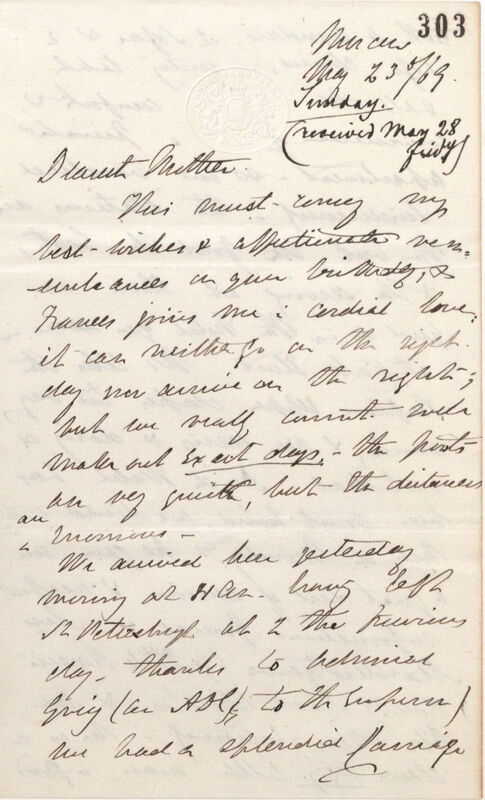 303
Moscow
May 23d/69.
Sunday.
(received May 28
friday)
Dearest Mother
This must convey my
best wishes & affectionate rem=
embrances on your birthday, &
Frances joins me i cordial love;
it can neither go on the right
day nor arrive on the right;
but we really cannot well
make out exact days. - the posts
are very quick, but the distances
are
enormous -
We arrived here yesterday
morning at a.m. having left
St Petersburgh at 2 the previous
day, thanks to Admiral
Greig (an ADC, to the Emperor)
we had a splendid Carriage